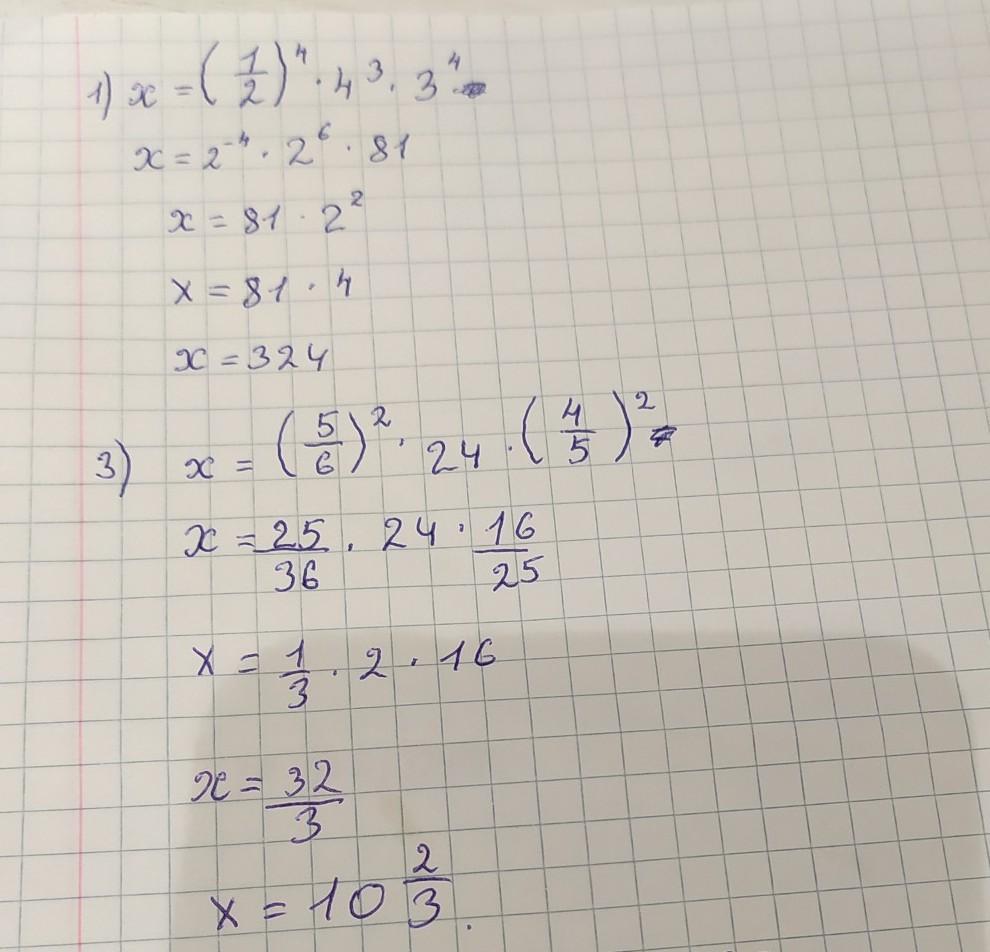 1) x = (1/2)⁴ · 4³ · 3⁴
x = 2⁻⁴ · 2⁶ · 81
x = 81 · 2²
x = 81 · 4
x = 324
3) x = (5/6)² · 24 · (4/5)²
x = 25/36 · 24 · 16/25
x = 1/3 · 2 · 16
x = 32/3
x = 10 2/3.